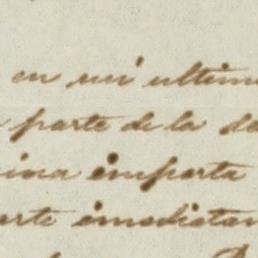 en mi ultim
parte de la de
ina importa
arte imediatam